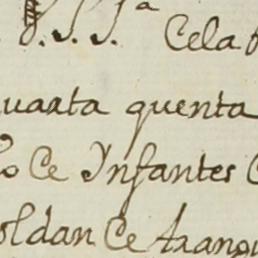 V. S. S.ª Cela
quarta quenta
o Ce Ynfantes C
oldan Ce Aranq